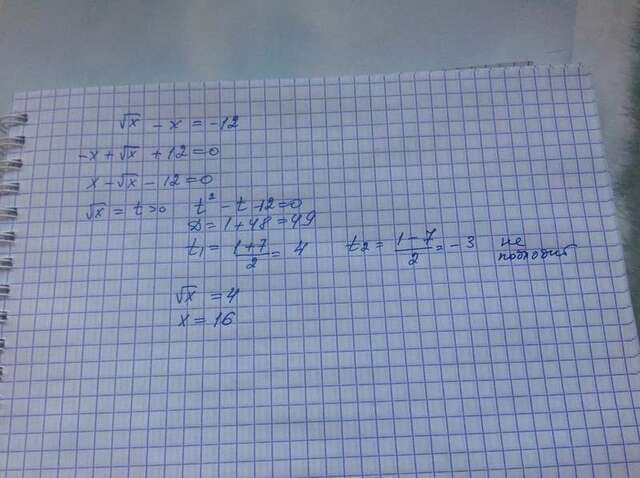 √x - x = -12
-x + √x + 12 = 0
x - √x - 12 = 0
√x = t >0 t² - t - 12 = 0
D = 1 + 48 = 49
t₁ = (1+7)/2 = 4 t₂ = (1-7)/2 = -3 не подходит
√x = 4
x = 16